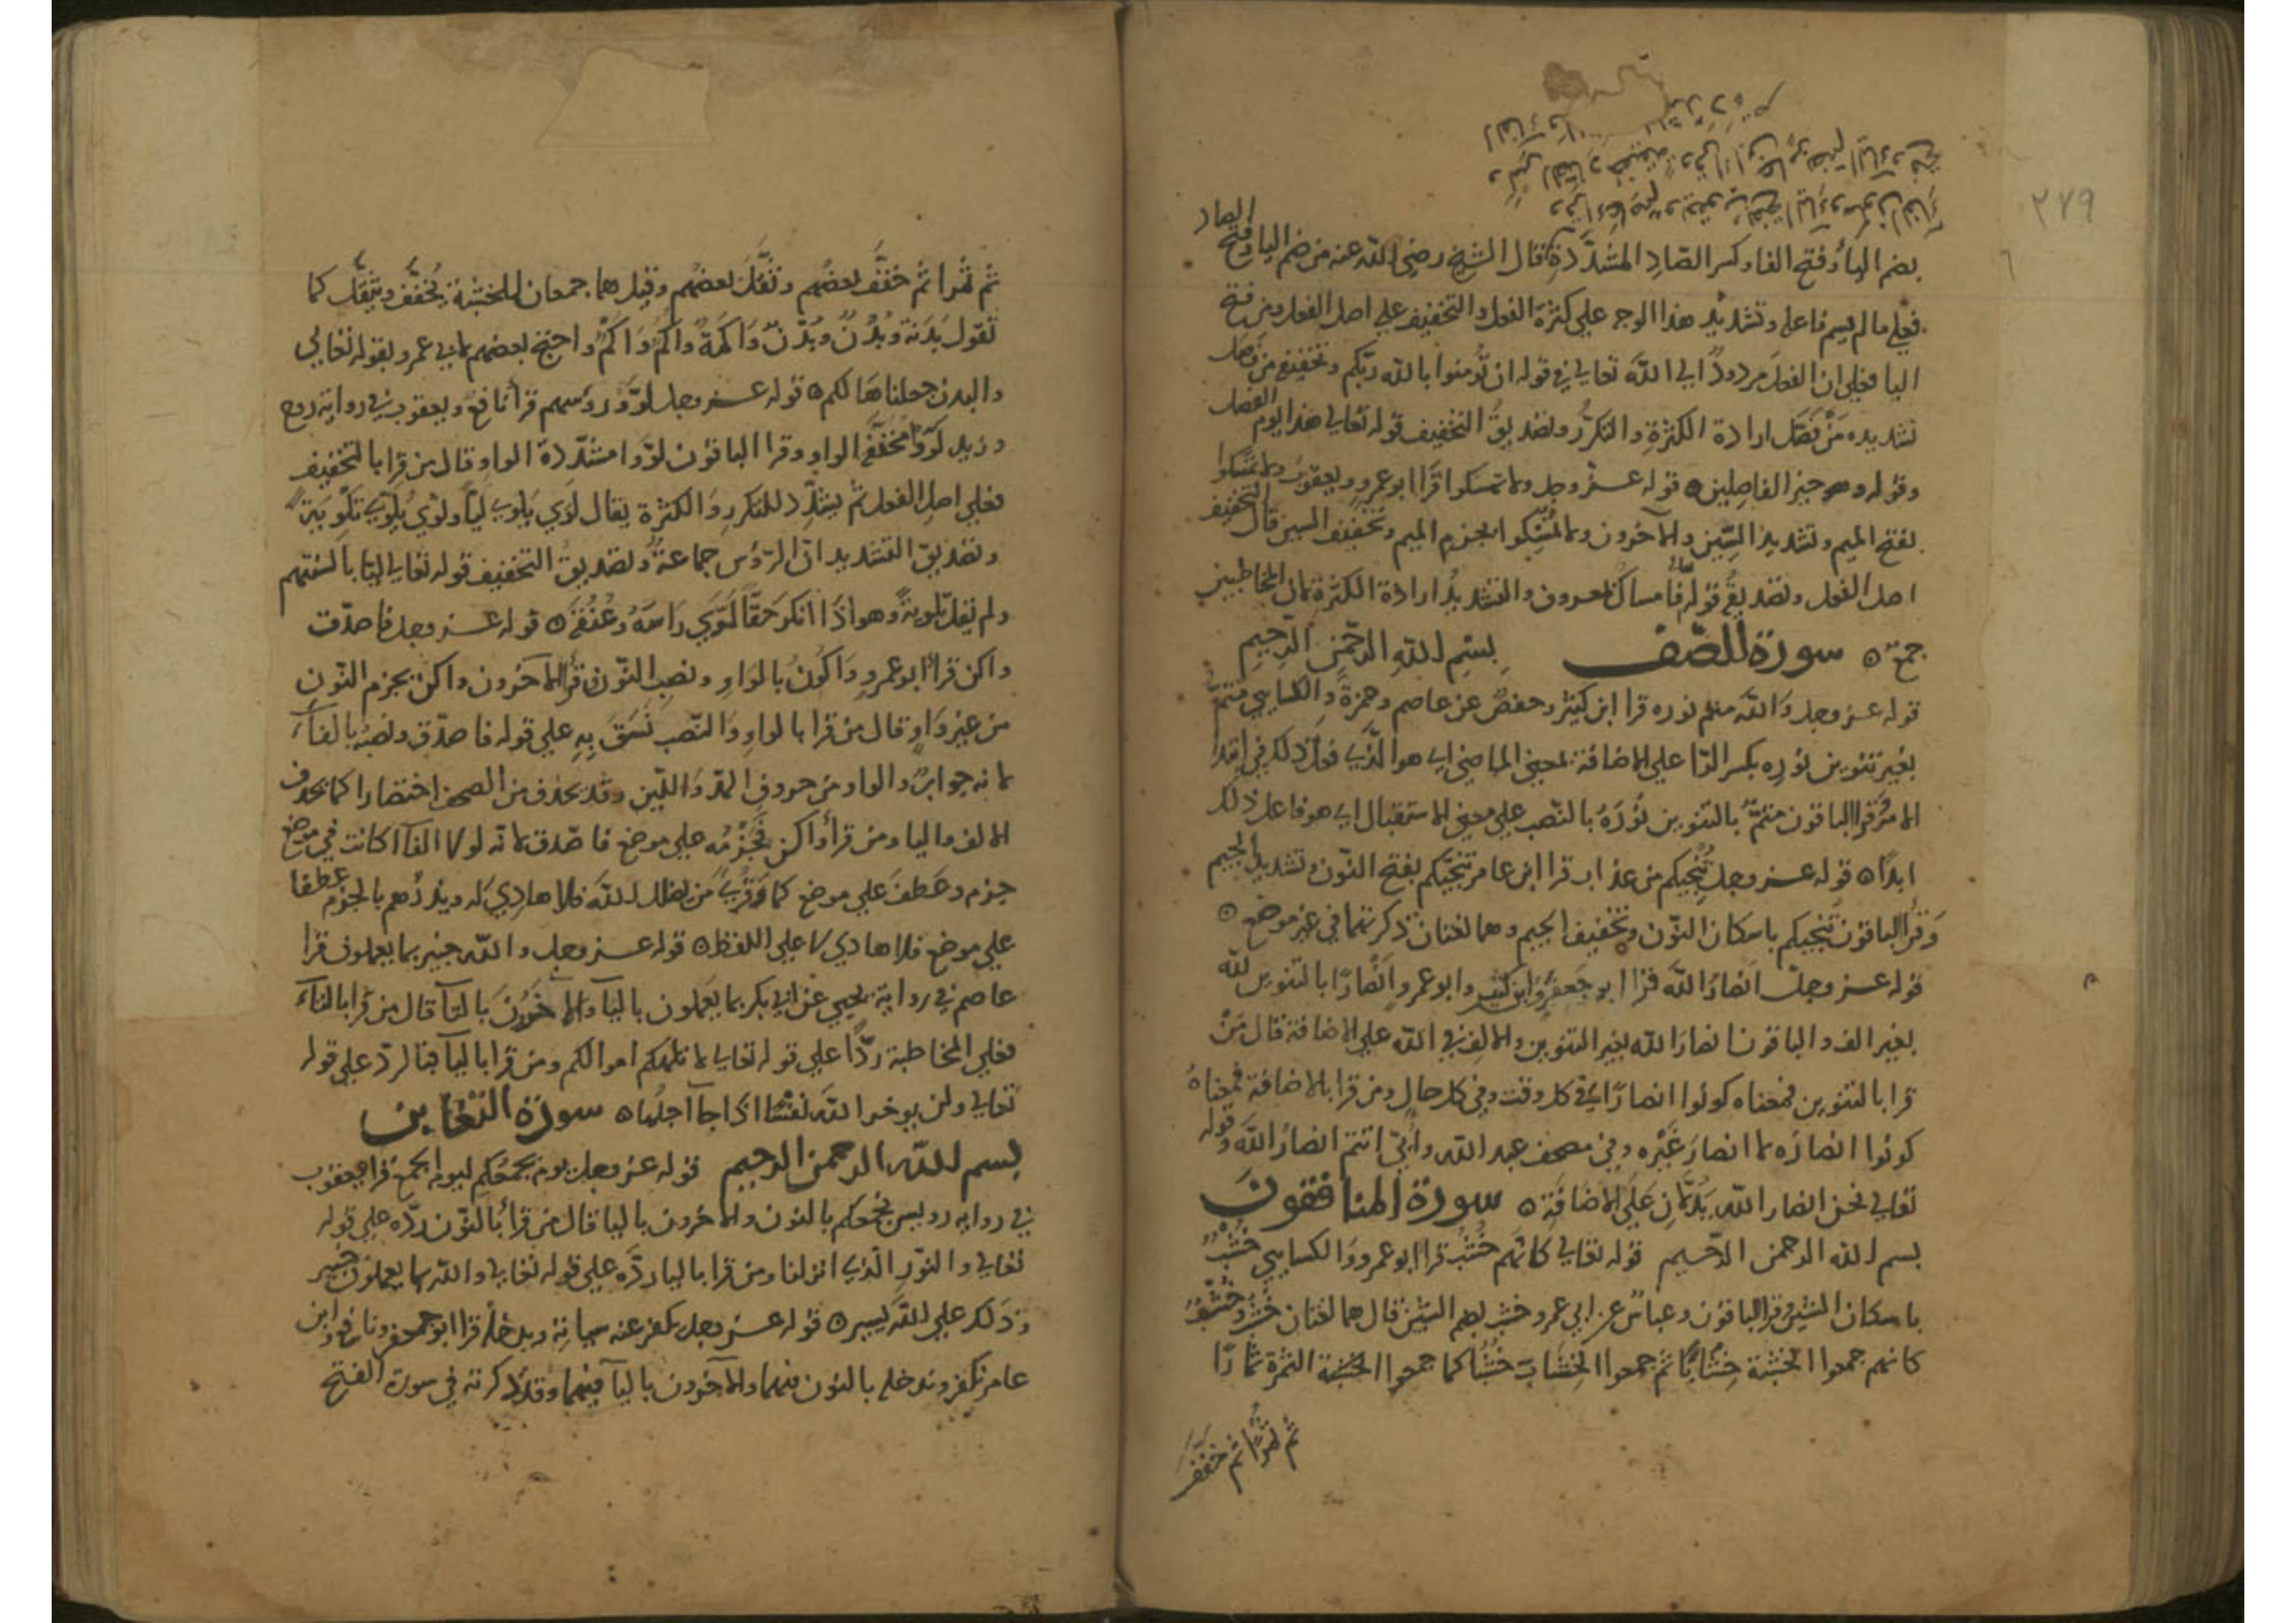 ٢٧٩
بضم الياء وفتح الفا وكسر الصّادِ المشدَّدة قال الشيخ رضي الله عنه من ضم اليا وفتح الصاد
فعلي مالم يسم فاعله وتشديد هذا الوجه علي كثرة الفعل والتخفيف علي اصل الفعل ومن فتح
اليا فعلي ان الفعل مردودٌ الي الله تعالي في قوله ان تؤمنوا بالله ربّكم وتخفيفه من فصل
تشديده من فصّل ارادة الكثرة والتكرُّر وتصديقُ التخفيف قوله تعالي هذا يوم الفصل
وقوله وهو خير الفاصلين ٥ قوله عزّ وجل ولا تمسكوا قرا ابو عمرو ويعقوب ولا تمسّكوا
بفتح الميم وتشديد السّين والآخرون ولا تُمْسِكوا بجزم الميم وتخفيف السين قال التخفيف
اصل الفعل وتصديقُه قوله فامساك بمعروف والتشديدُ ارادة الكثرة لان المخاطبين
جمع ٥ سورة الصّف بِسْمِ اللهِ الرَّحْمٰنِ الرَّحِيمِ
قوله عز وجل وَالله متم نوره قرا ابن كثير وحفصٌ عن عاصم وحمزةُ والكسايي متمُّ
بغير تنوين نورِه بكسر الرّا علي الاضافة بمعني الماضي اي هو الّذي فعل ذلك في ابتدا
الامر وقرا الباقون متمٌّ بالتنوين نُوْرَهُ بالنّصب علي معني الاستقبال اي هو فاعل ذلك
ابدًا ٥ قوله عز وجل تُنْجيكم من عذاب قرا ابن عامر تنجّيكم بفتح النّون وتشديد الجيم
وَقرأ الباقون تنْجيكم باسكان النّون وتخفيف الجيم وهما لغتان ذكرتهما في غير موضع ٥
قوله عز وجلّ انصارُ الله قرا ابو جعفر وابن كثير وابو عمرو انْصارًا بالتنوين لله
بغير الف والباقون انصارَ الله بغير التنوين والالف في الله علي الاضافة قال مَنْ
قرا بالتنوين فمعناه كونوا انصارًا في كل وقت وفي كل حالٍ ومن قرا بالاضافة فمعناهُ
كونوا انصارَه لا انصارَ غَيْره وفي مصحف عبد الله وابيّ انتم انصارُ الله وقوله
تعالي نحن انصار الله يَدُلّانِ عَلَي الاضافَة ٥ سورة المنافقونَ
بسم الله الرحمن الرّحيم قوله تعالي كانّهم خُشُبٌ قرا ابو عمرو وَالكسايي خُشْبٌ
باسكان الشين وقرا الباقون وعباسٌ عن ابي عمرو خشب بضم الشّين قال هما لغتان خُشْبٌ وخُشُبٌ
كانهم جمعوا الخشبة خِشَابًا ثم جمعوا الخِشَابَ خُشُبًا كما جمعوا الخشبة الثمرة ثمارًا
ثم ثمرًا ثم خفّف
ثم ثمُرا ثم خفَّف بعضُهم وثَقَّلَ بعضُهم وقيل هما جمعان للخشبة يُخَفَّف ويثقّل كما
تَقول بَدَنَة وبُدْنٌ وبُدُنٌ وَاكَمَةٌ واُكُمٌ وَاكْمٌ واحتج بعضهم لابي عمرو بقوله تعالي
والبدن جعلناها لكم ٥ قوله عز وجل لوّوا رؤسهم قرأ نافع ويعقوب في رواية روح
وزيد لَوَوْا مخففَةَ الواوِ وقرا الباقون لوّوا مشدّدة الواو قال من قرا بالتخفيف
فعلي اصل الفعل ثم يشدّد للتكرر والكثرة يقال لَوَي يَلوي ليّا ولوّي يُلوّي تلويَةً
وتصديق التشديد انّ الرّؤس جماعةٌ وتصديقُ التخفيف قوله تعالي ليّا بالسنتهم
ولم يقل تلويةً وهو اذا انكر حَقًّا لَوَّي رَاسَهُ وعُنُقَهُ ٥ قوله عز وجل فاصدّق
واكن قرأ ابو عمروٍ وَاكُونَ بالوَاوِ ونصبِ النّون وقرأ الآخرون واكنْ بجزم النّونِ
من غير وَاوٍ قال من قرا بالواوِ والنّصب نَسَقَ بِهِ علي قوله فاصدّق ونصبُه بالفآء
لانه جوابٌ والواو من حروف المدّ وَاللّين وقد يحذف من المصحف اختصارا كما يحذف
الالف واليا ومن قرأ واكن بجَزْمِه علي موضع فاصّدق لانّه لولا الفآ كانت في موضع
جزم وعَطفَ علي موضع كما قُرِئ من يضلل الله فلا هادي له ويذرْهم بالجزم عطفا
علي موضع فلا هادي لا علي اللفظ ٥ قوله عز وجل والله خبير بما يعملون قرا
عاصم في رواية يحيي عن ابي بكر بما يَعْملون باليآ والآخَرُونَ بَالتآ قال من قرا بالتآء
فعلي المخاطبة ردًّا علي قوله تعالي لا تلهكم اموالكم ومن قرا باليآ فبالردّ علي قوله
تعالي ولن يوخر الله نفسًا اذا جآ اجلُها ٥ سورة التغابن
بسم الله الرحمن الرحيم قوله عز وجل يوم يجمعكم ليوم الجمع قرا يعقوب
في روايه رويس نجمعكم بالنون والاخرون باليا قال من قرأ بالنّون ردّه علي قوله
تعالي والنّورِ الّذي انزلنا ومن قرا باليا ردَّه علي قوله تعالي والله بما يعملون خبير
وذلك علي الله يسير ٥ قوله عز وجل يكفر عنه سياته ويدخله قرا ابو جعفر ونافع وابن
عامر نكفر وندخله بالنون فيهما والآخرون باليآ فيهما وقد ذكرته في سورة الفتح